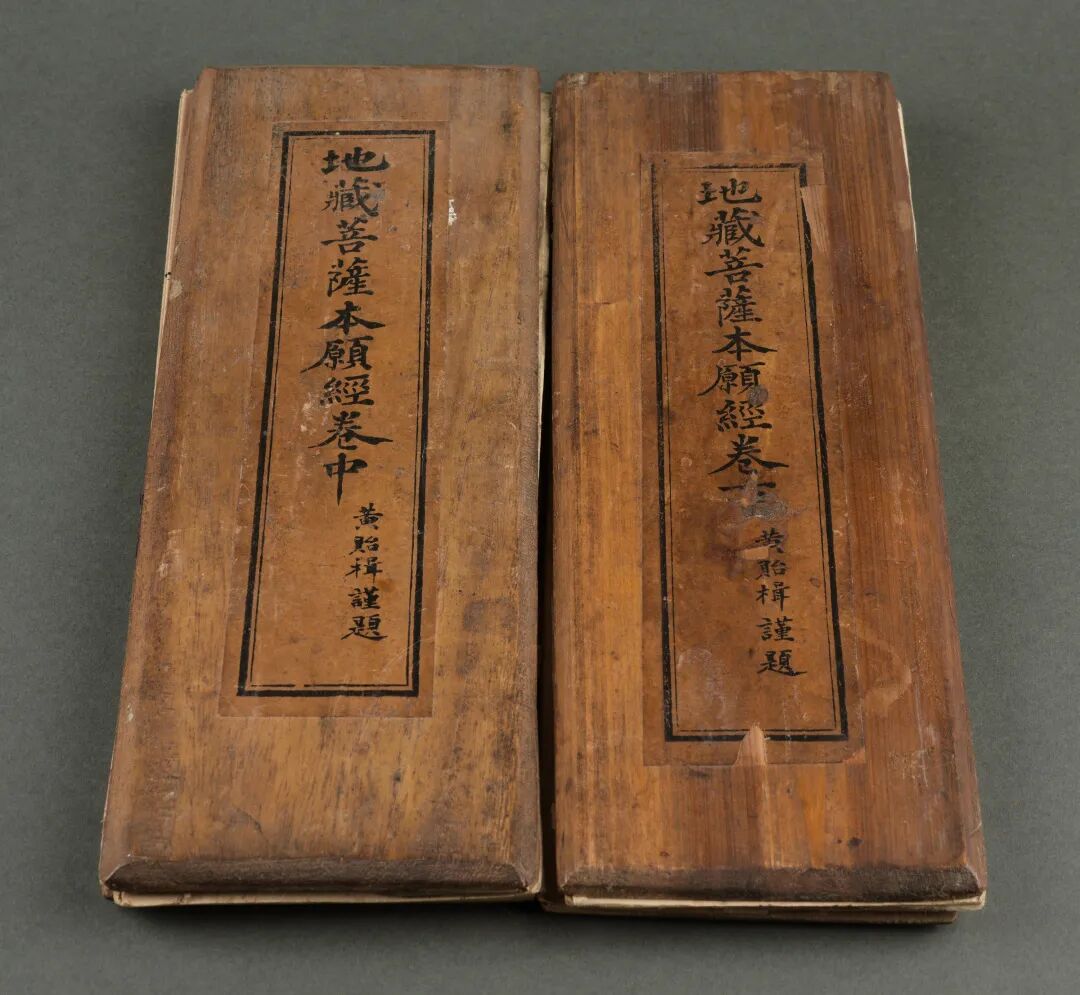 地藏菩薩本願經卷中
黄貽楫謹題
地藏菩薩本願經卷下
黄貽楫謹題